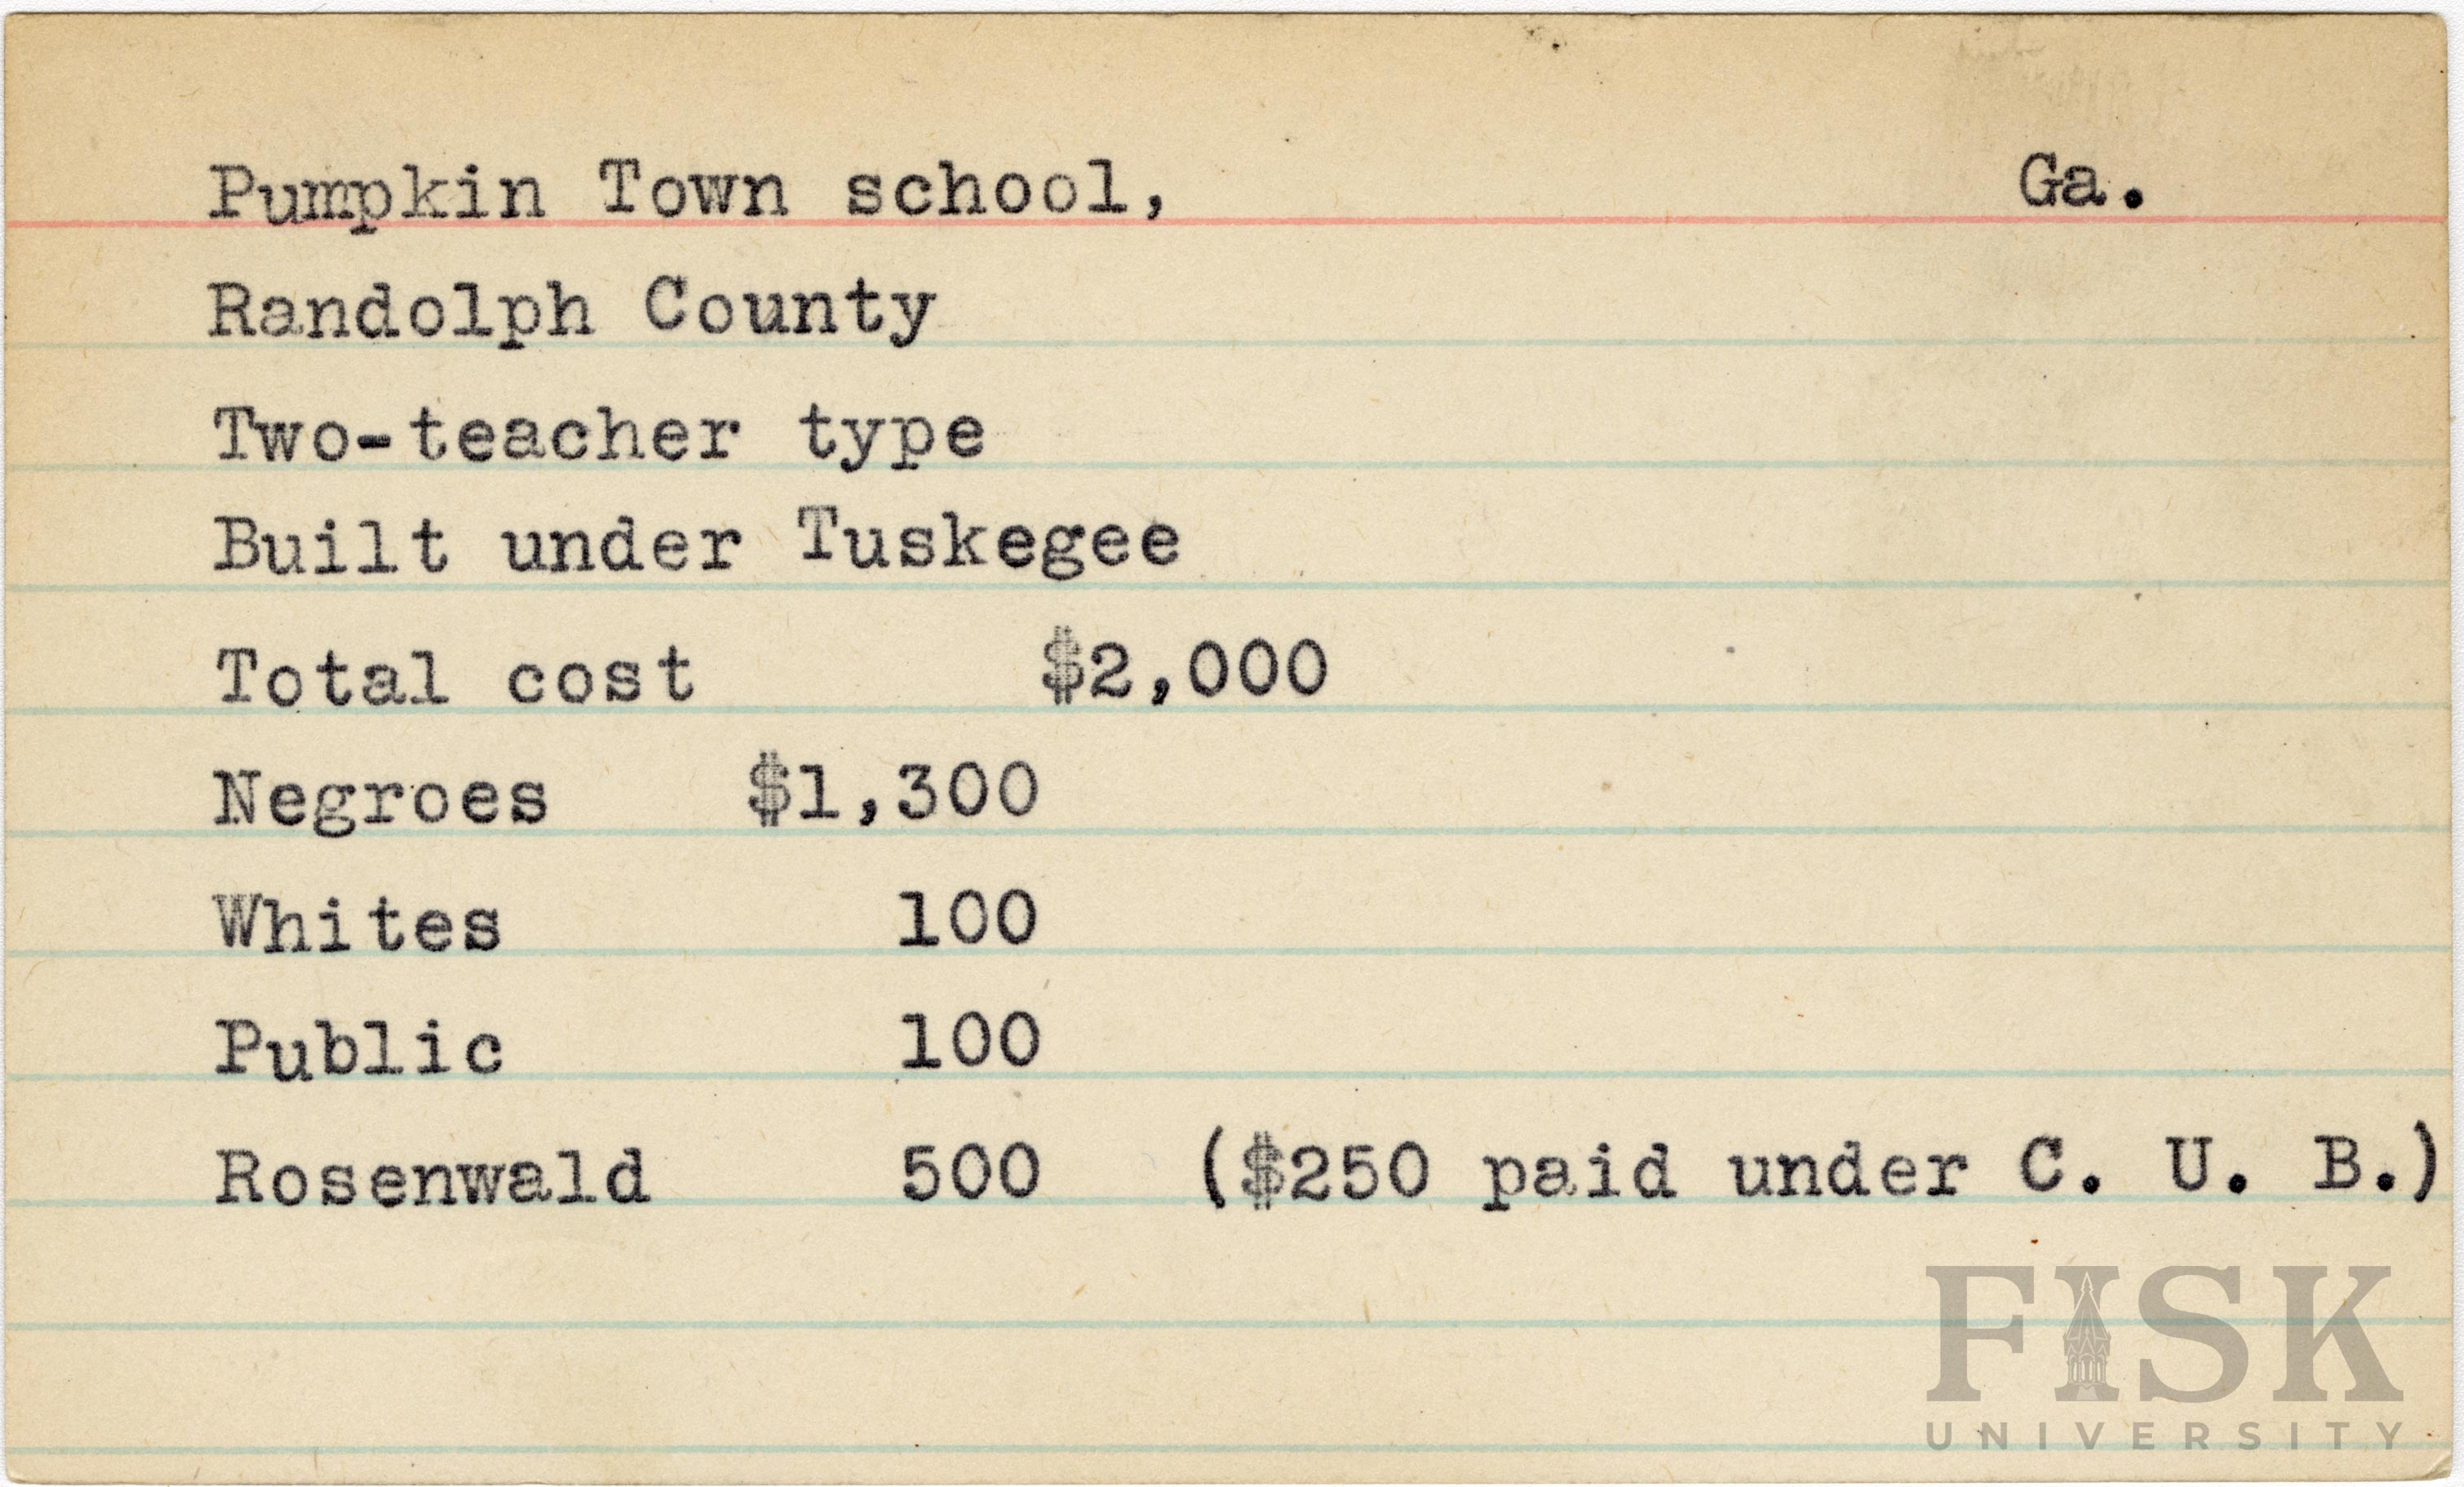 Pumpkin Town school, Ga.
Randolph County
Two-teacher type
Built under Tuskegee
Total cost $2,000
Negroes $1,300
Whites 100
Public 100
Rosenwald 500 ($250 paid under C. U. B.)
FISK
UNIVERSITY